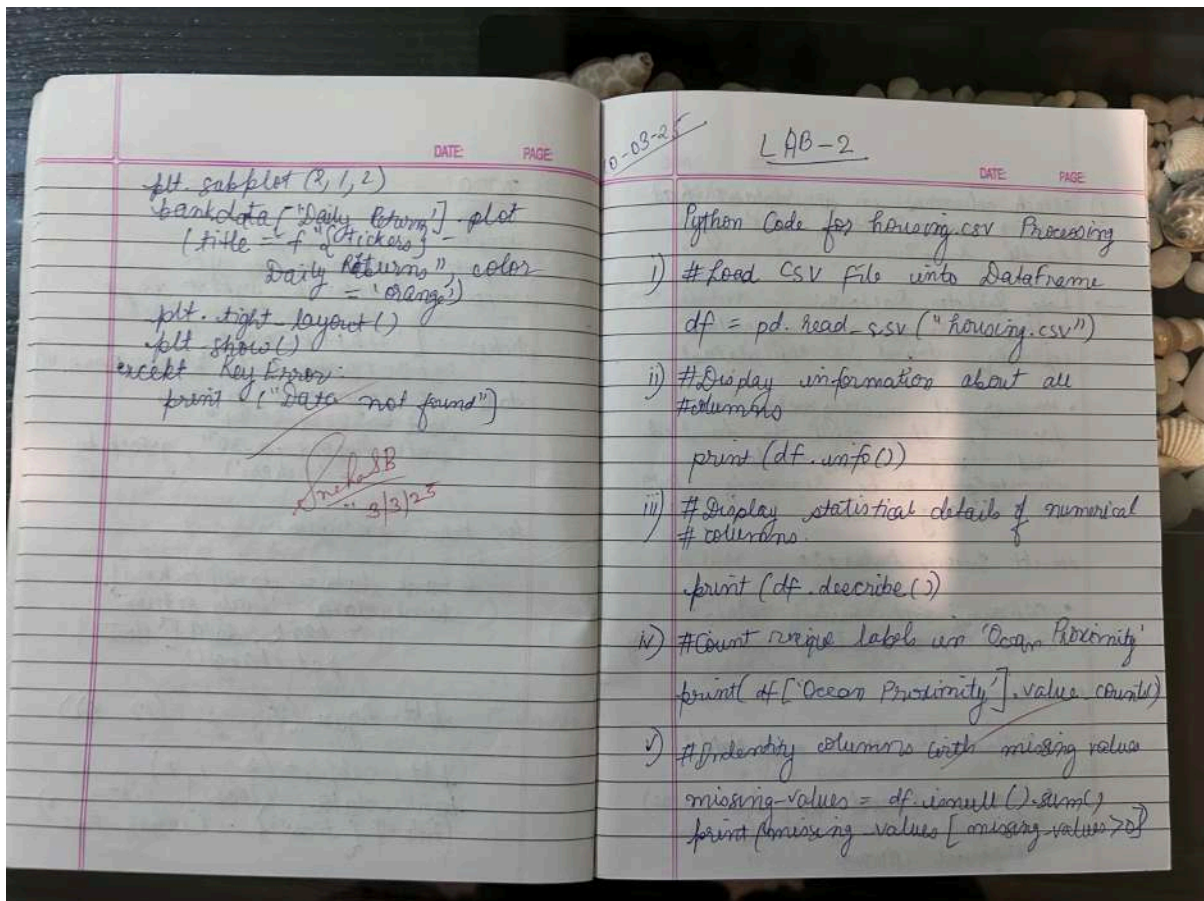 DATE: PAGE:
plt. subplot (2, 1, 2)
bankdata ["Daily Return"] . plot
(title = f "{tickers} -
Daily Returns", color
= 'orange')
plt. tight_layout()
plt. show()
except Key Error:
print ("Data not found")
SnehaSB
3/3/25
10-03-25
LAB-2
DATE: PAGE:
Python Code for housing.csv Processing
i) #Load CSV file into DataFrame
df = pd. read_csv ("housing.csv")
ii) #Display information about all
#columns
print (df.info())
iii) #Display statistical details of numerical
# columns.
print (df.describe())
iv) #Count unique labels in 'Ocean Proximity'
print( df ['Ocean Proximity'].value_counts()
v) #Indentity columns with missing values
missing-values = df.isnull().sum()
print (missing-values [missing-values>0]